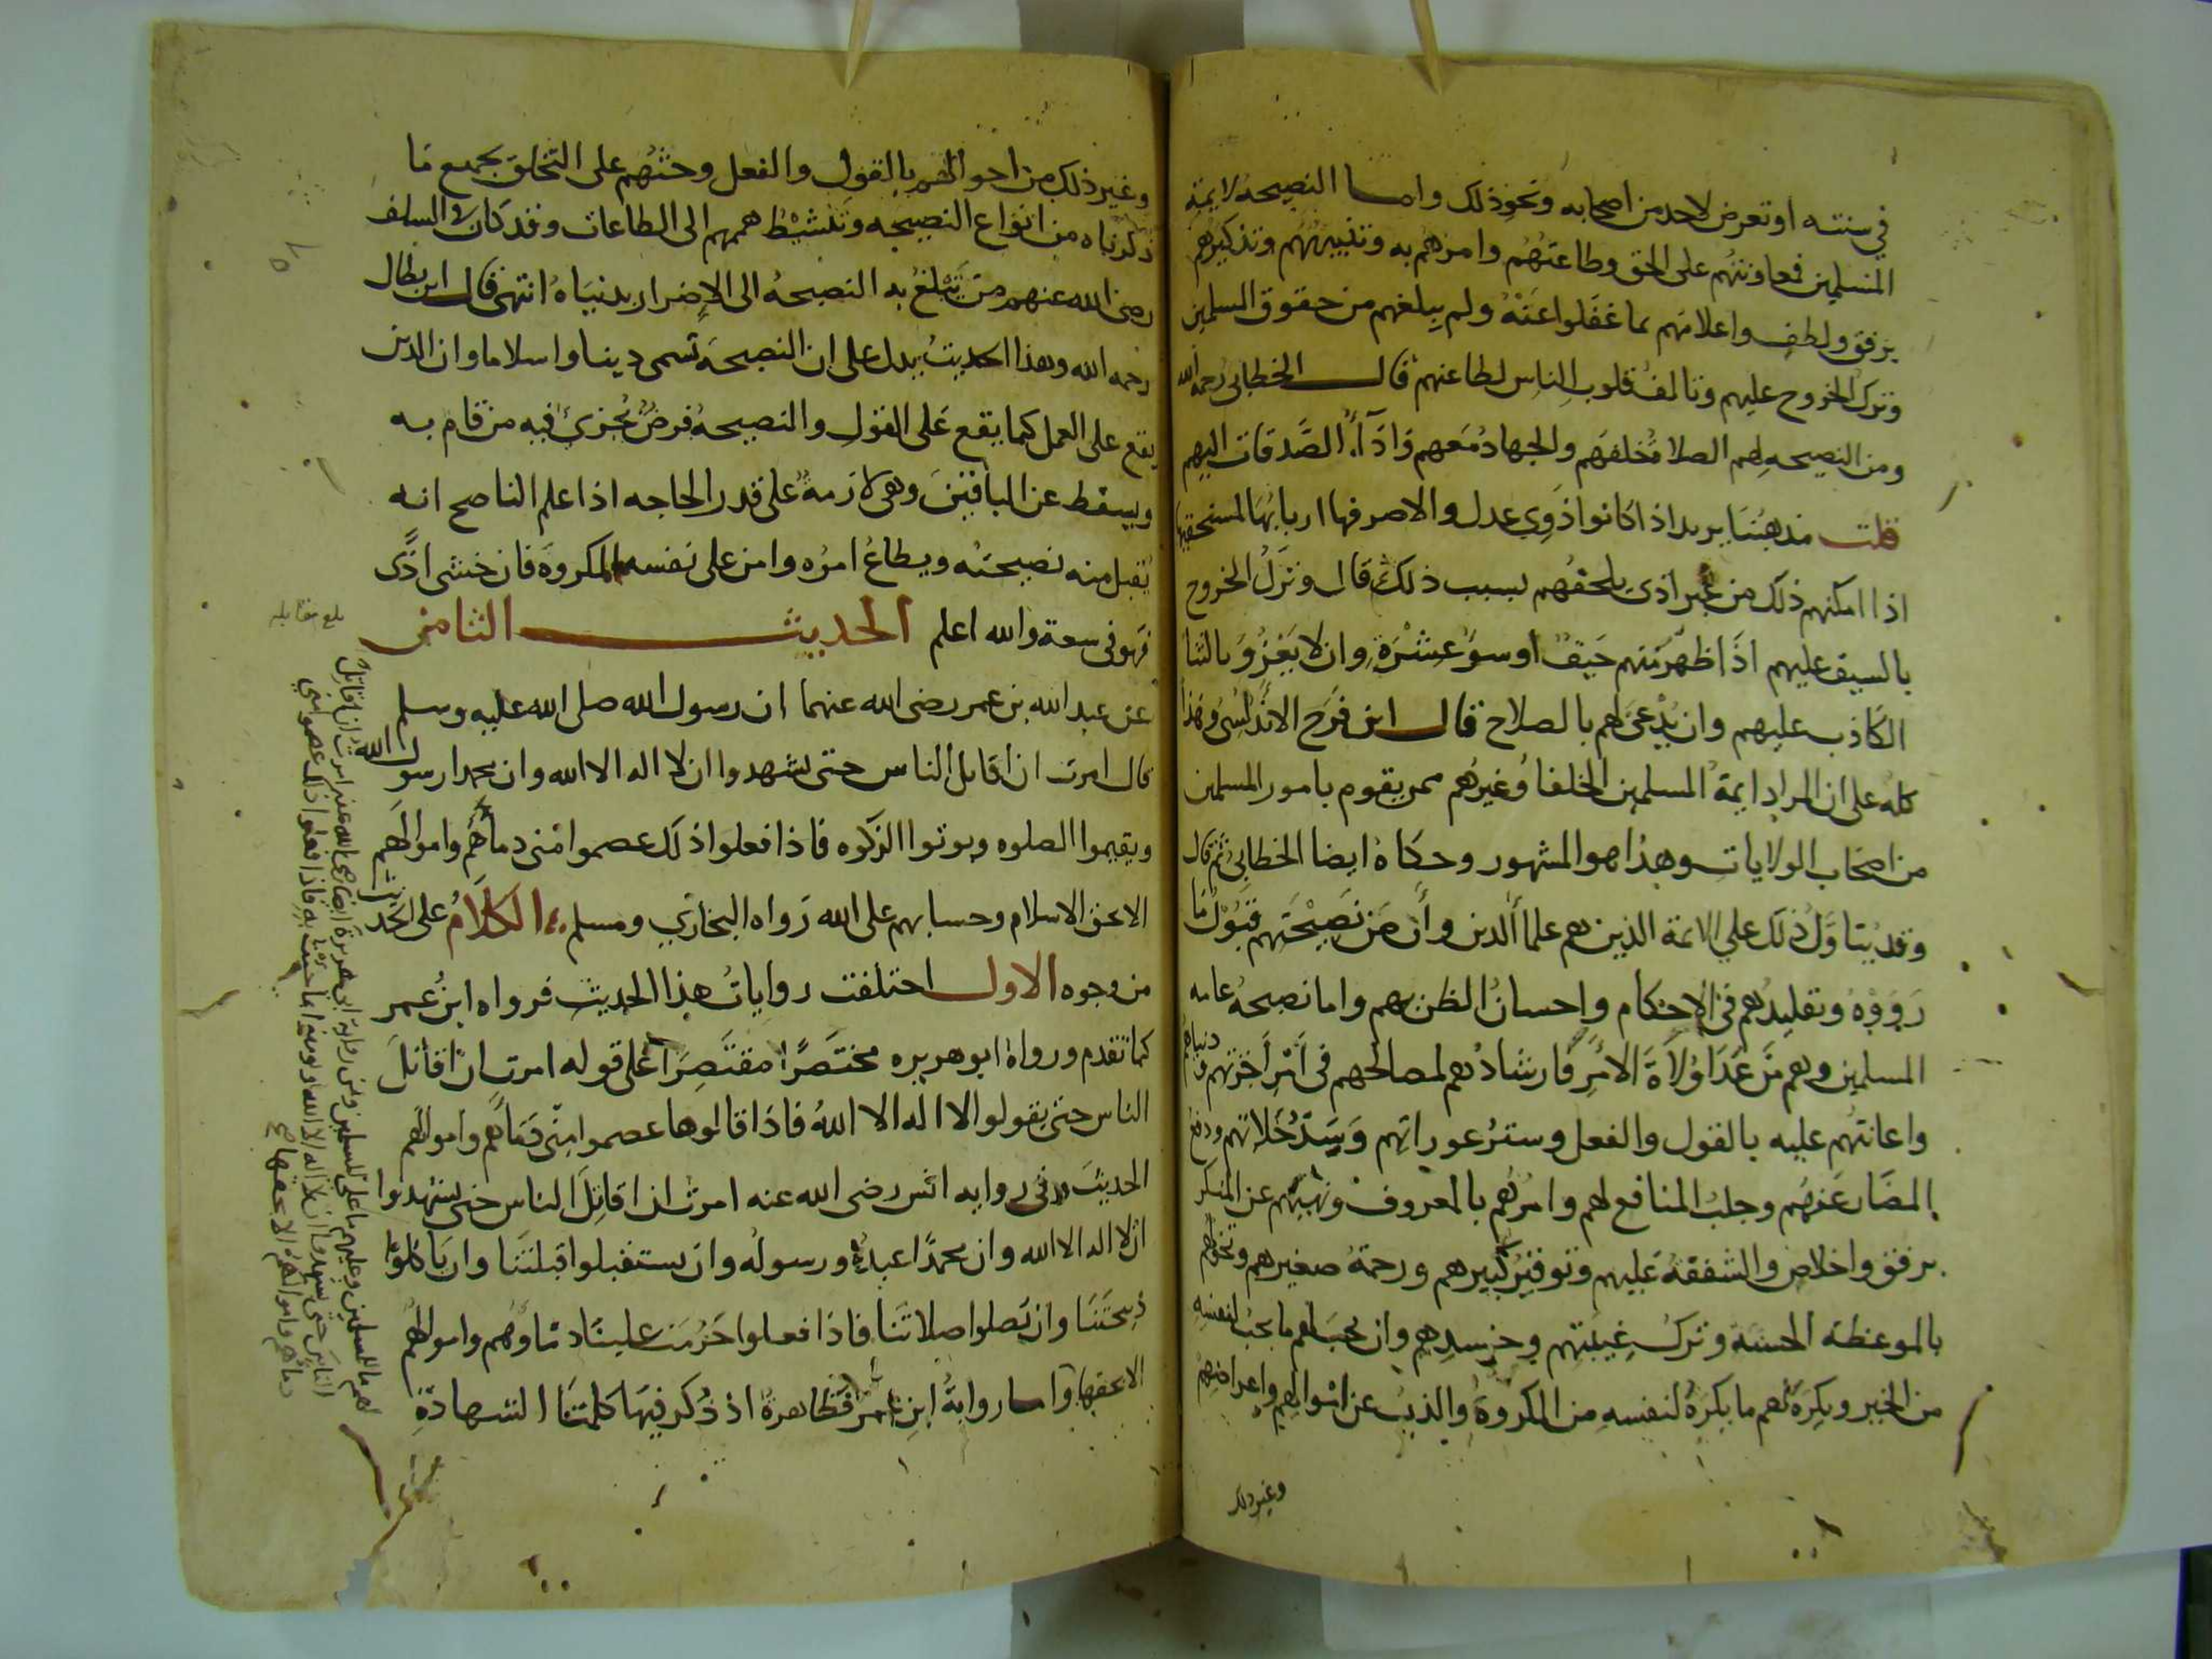 في سنته او تعرض لاحد من اصحابه ونحو ذلك واما النصيحة لايمة
المسلمين فمعاونتهم على الحق وطاعتهم وامرهم به وتنبيههم وتذكيرهم
برفق ولطف واعلامهم بما غفلوا عنه ولم يبلغهم من حقوق المسلمين
وترك الخروج عليهم وتالف قلوب الناس لطاعتهم قال الخطابي رحمه الله
ومن النصيحه لهم الصلاة خلفهم والجهاد معهم واداء الصدقات اليهم
قلت مذهبنا يريد اذا كانوا ذوي عدل والا صرفها اربابها لمستحقيها
اذا امكنهم ذلك من غير اذى يلحقهم بسبب ذلك قال وترك الخروج
بالسيف عليهم اذا ظهر منهم حيف او سوء عشرة وان لا يغزو بالثنا
الكاذب عليهم وان يدعى لهم بالصلاح قال ابن فرح الاندلسي وهذا
كله على ان المراد ايمة المسلمين الخلفا وغيرهم ممن يقوم بامور المسلمين
من اصحاب الولايات وهذا هو المشهور وحكاه ايضا الخطابي ثم قال
وقد يتاول ذلك علي الايمة الذين هم علما الدين وان من نصيحتهم قبول ما
رووه وتقليدهم في الاحكام واحسان الظن بهم واما نصيحة عامه
المسلمين وهم من عدا ولاة الامر فارشادهم لمصالحهم في امر اخرتهم ودنياهم
واعانتهم عليه بالقول والفعل وستر عوراتهم وسد خلاتهم ودفع
المضار عنهم وجلب المنافع لهم وامرهم بالمعروف ونهيهم عن المنكر
برفق واخلاص والشفقة عليهم وتوقير كبيرهم ورحمة صغيرهم وتخولهم
بالموعظة الحسنة وترك غيبتهم وحسدهم وان يحب لهم ما يحب لنفسه
من الخير ويكره لهم ما يكره لنفسه من المكروه والذب عن اموالهم واعراضهم
وغير ذلك
وغير ذلك من احوالهم بالقول والفعل وحثهم على التخلق بجميع ما
ذكرناه من انواع النصيحه وتنشيط هممهم الى الطاعات وقد كان في السلف
رضي الله عنهم من تبلغ به النصيحة الى الاضرار بدنياه انتهى قال ابن بطال
رحمه الله وهذا الحديث يدل على ان النصيحة تسمى دينا واسلاما وان الدين
يقع على العمل كما يقع على القول والنصيحة فرض يجزئ فيه من قام به
ويسقط عن الباقين وهي لازمة على قدر الحاجه اذا علم الناصح انه
يقبل منه نصيحته ويطاع امره وامن على نفسه المكروه فان خشى اذى
فهو في سعة والله اعلم الحديث الثامن
بلغ مقابله
عن عبد الله بن عمر رضي الله عنهما ان رسول الله صلى الله عليه وسلم
قال امرت ان اقاتل الناس حتى يشهدوا ان لا اله الا الله وان محمدا رسول الله
ويقيموا الصلوه ويوتوا الزكوه فاذا فعلوا ذلك عصموا مني دماهم واموالهم
الا بحق الاسلام وحسابهم على الله رواه البخاري ومسلم الكلام على الحديث
من وجوه الاول اختلفت روايات هذا الحديث فرواه ابن عمر
كما تقدم ورواه ابو هريره مختصرا مقتصرا على قوله امرت ان اقاتل
الناس حتى يقولوا لا اله الا الله فاذا قالوها عصموا مني دماهم واموالهم
الحديث وفي روايه انس رضي الله عنه امرت ان اقاتل الناس حتى يشهدوا
ان لا اله الا الله وان محمدا عبده ورسوله وان يستقبلوا قبلتنا وان ياكلوا
ذبيحتنا وان يصلوا صلاتنا فاذا فعلوا حرمت علينا دماوهم واموالهم
الا بحقها واما رواية ابن عمر فظاهرة اذ ذكر فيها كلمتا الشهادة
لهم ما للمسلمين وعليهم ما على المسلمين وفي رواية ابي هريرة ايضا رضي الله عنه امرت ان اقاتل
الناس حتى يشهدوا ان لا اله الا الله ويومنوا بما جيت به فاذا فعلوا ذلك عصموا مني
دماهم واموالهم الا بحقها صح